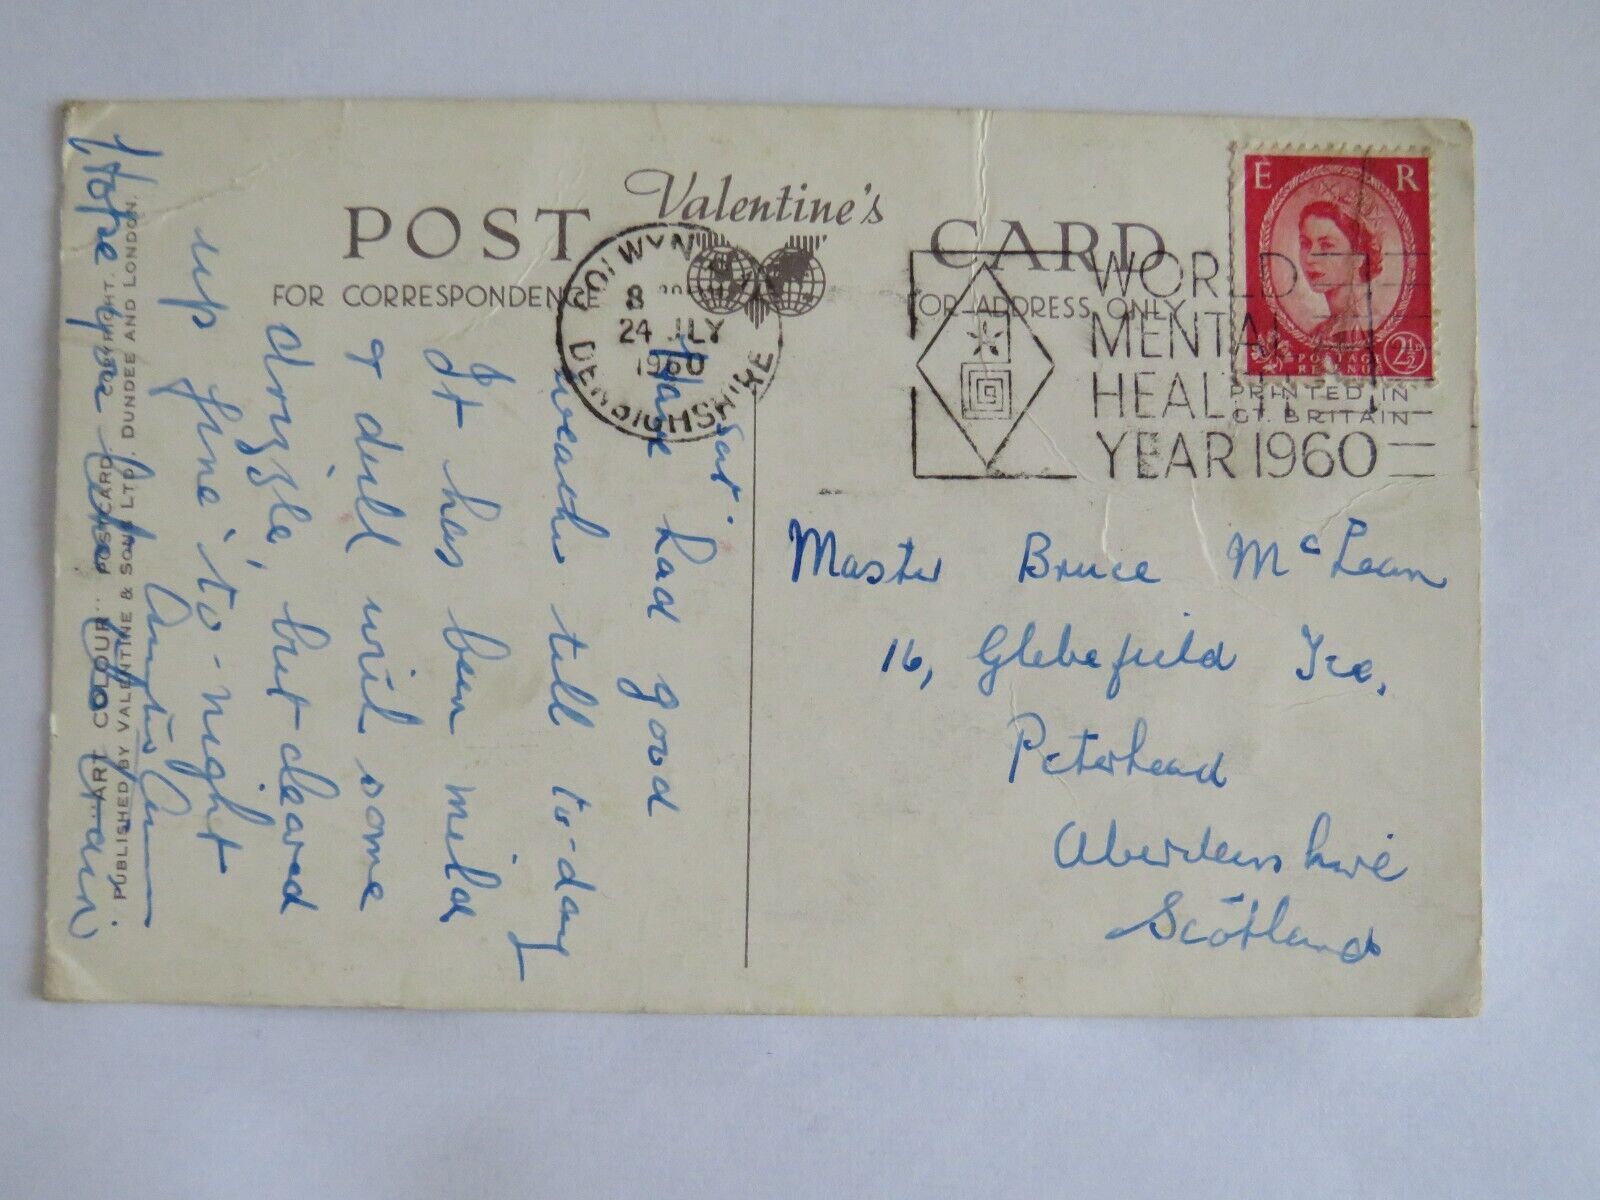 POST Valentine's CARD
FOR CORRESPONDENCE
OR ADDRESS ONLY
COLWYN BAY
8
24 JLY
1960
DENBIGHSHIRE
WORLD
MENTAL
HEALTH
YEAR 1960
E R
POSTAGE
REVENUE
2½
PRINTED IN
GT. BRITAIN
Sat.
Have had good
weather till to-day
It has been mild
& dull with some
drizzle, but cleared
up fine to-night
Hope you
"ART COLOUR" POSTCARD COPYRIGHT.
PUBLISHED BY VALENTINE & SONS LTD., DUNDEE AND LONDON.
Master Bruce McLean
16, Glebefield Tce,
Peterhead
Aberdeenshire
Scotland